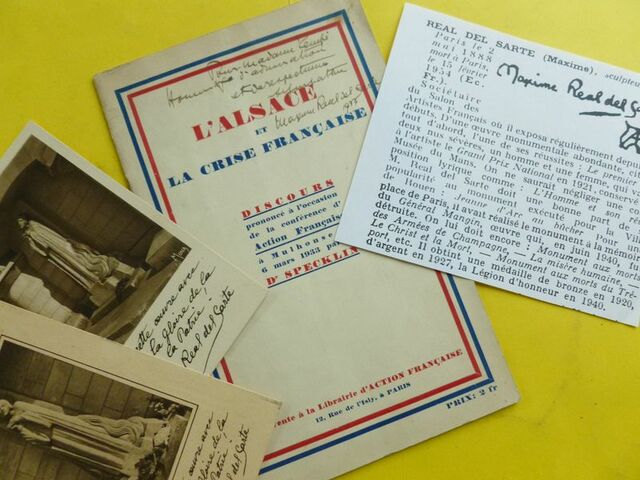 Pour madame
Hommage d'admiration
et respectueuse
sympathie
Maxime Real del Sarte
L'ALSACE
ET
LA CRISE FRANÇAISE
DISCOURS
prononcé à l'occasion
de la conférence d'
Action Française
à Mulhouse
6 mars 1933 par
Dr SPECKLIN
En vente à la Librairie d'ACTION FRANÇAISE
12, Rue de l'Isly, à PARIS
PRIX: 2 fr
REAL DEL SARTE (Maxime), sculpteur
Paris le 2
mai 1888
mort à Paris
le 15 février
1954 (Ec.
Fr.)
Maxime Real del S
Sociétaire
du Salon des
Artistes Français où il exposa régulièrement depuis
débuts. D'une œuvre monumentale abondante, on
tout d'abord. Une de ses réussites : Le premier
deux nus sévères, un homme et une femme, qui
à l'artiste le Grand Prix National en 1921, conservé
Musée du Mans. On ne saurait négliger une
position biblique comme : L'Homme et son
M. Real del Sarte doit une bonne part de
popularité au monument exécuté pour la Ville
de Rouen : Jeanne d'Arc au bûcher. Pour
place de Paris, il avait réalisé le monument à la mémoire
du Général Mangin, œuvre qui, en juin 1940, fut
détruite. On lui doit encore : Monument aux morts
des Armées de Champagne, — La misère humaine, —
Le Christ et la Mort, — Monument aux morts du Tré-
port, etc. Il obtint une médaille de bronze en 1920,
d'argent en 1927, la Légion d'honneur en 1940.
cette œuvre avec
La gloire de la
la Patrie !
Real del Sarte
œuvre avec
gloire de la
la Patrie !
Real del Sarte